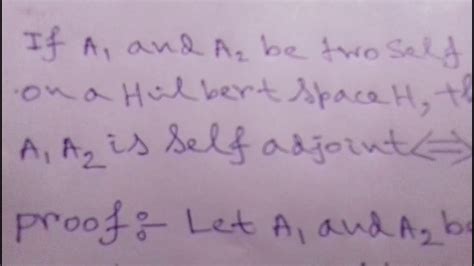 If A₁ and A₂ be two self
on a Hilbert space H,
A₁ A₂ is self adjoint ⇔
proof:- Let A₁ and A₂ be